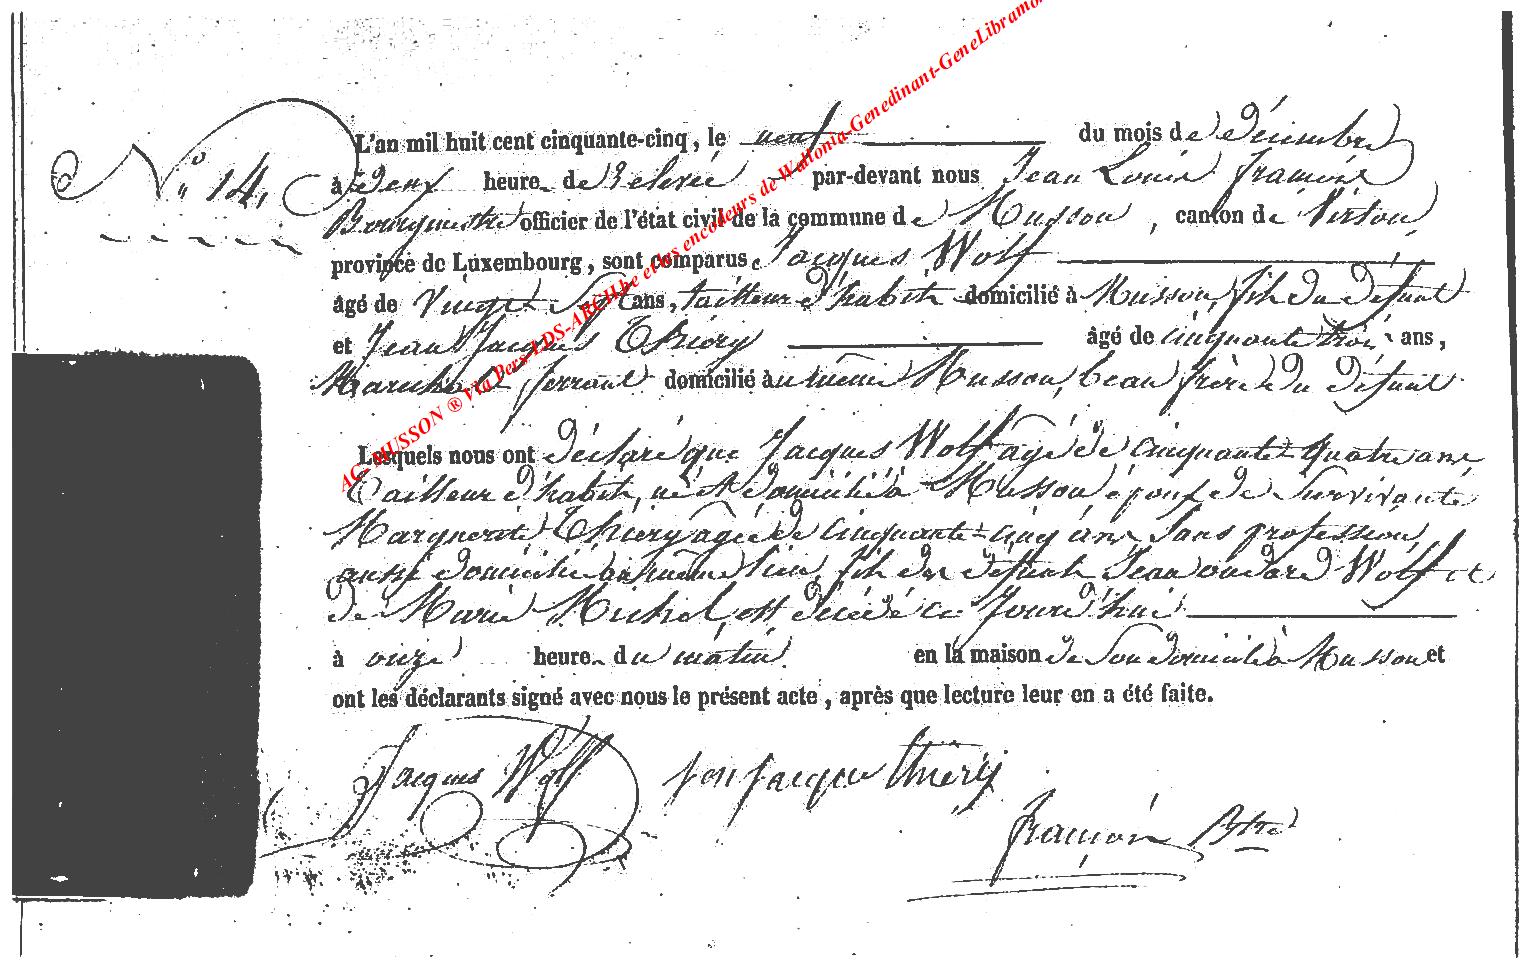 N.° 14,
L'an mil huit cent cinquante-cinq, le neuf du mois de Décembre
à deux heure de relevée par-devant nous Jean Louis François
Bourgmestre officier de l'état civil de la commune de Musson, canton de Virton,
province de Luxembourg, sont comparus Jacques Wolf
âgé de Vingt Sept ans, tailleur d'habits domicilié à Musson, fils du défunt
et Jean Jacques Thiéry âgé de cinquante trois ans,
Maréchal ferrant domicilié au même Musson, beau frère du défunt
Lesquels nous ont déclaré que Jacques Wolf agé de cinquante-quatre ans
Tailleur d'habits, né et domicilié à Musson époux de Survivante
Marguerite Thiéry agée de cinquante-cinq ans, Sans profession,
aussi domiciliée au même lieu, fils des défunts Jean Wolf et
de Marie Michel, est décédé ce Jourd'hui
à onze heure du matin en la maison de Son domicile à Musson et
ont les déclarants signé avec nous le présent acte, après que lecture leur en a été faite.
Jacques Wolf Jean Jacque thiéry
François Btre
AC- MUSSON ® Via Pers LDS-ARCH.be et les encodeurs de Wallonia-Genedinant-GeneLibramont